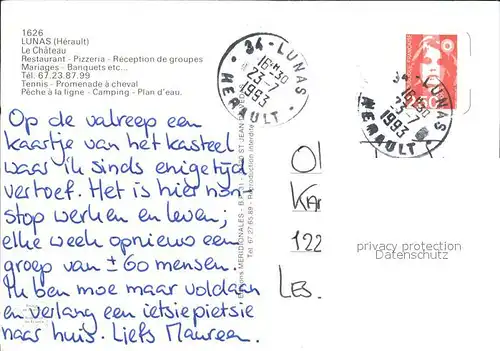 1626
LUNAS (Hérault)
Le Château
Restaurant - Pizzeria - Réception de groupes
Mariages - Banquets etc...
Tél. 67.23.87.99
Tennis - Promenade à cheval
Pêche à la ligne - Camping - Plan d'eau.
34 - LUNAS
16H30
23-7
1993
HERAULT
34 - LUNAS
16H30
23-7
1993
HERAULT
Op de valreep een
kaartje van het kasteel
waar ik sinds enige tijd
vertoef. Het is hier non-
stop werken en leven;
elke week opnieuw een
groep van ± 60 mensen.
Ik ben moe maar voldaan
en verlang een ietsiepietsie
naar huis. Liefs Maureen.
MERIDIONALES
ST JEAN DE
Tél. 67.27.65.89 - Reproduction interdite
Ol
Kar
122
LES.
privacy protection
Datenschutz